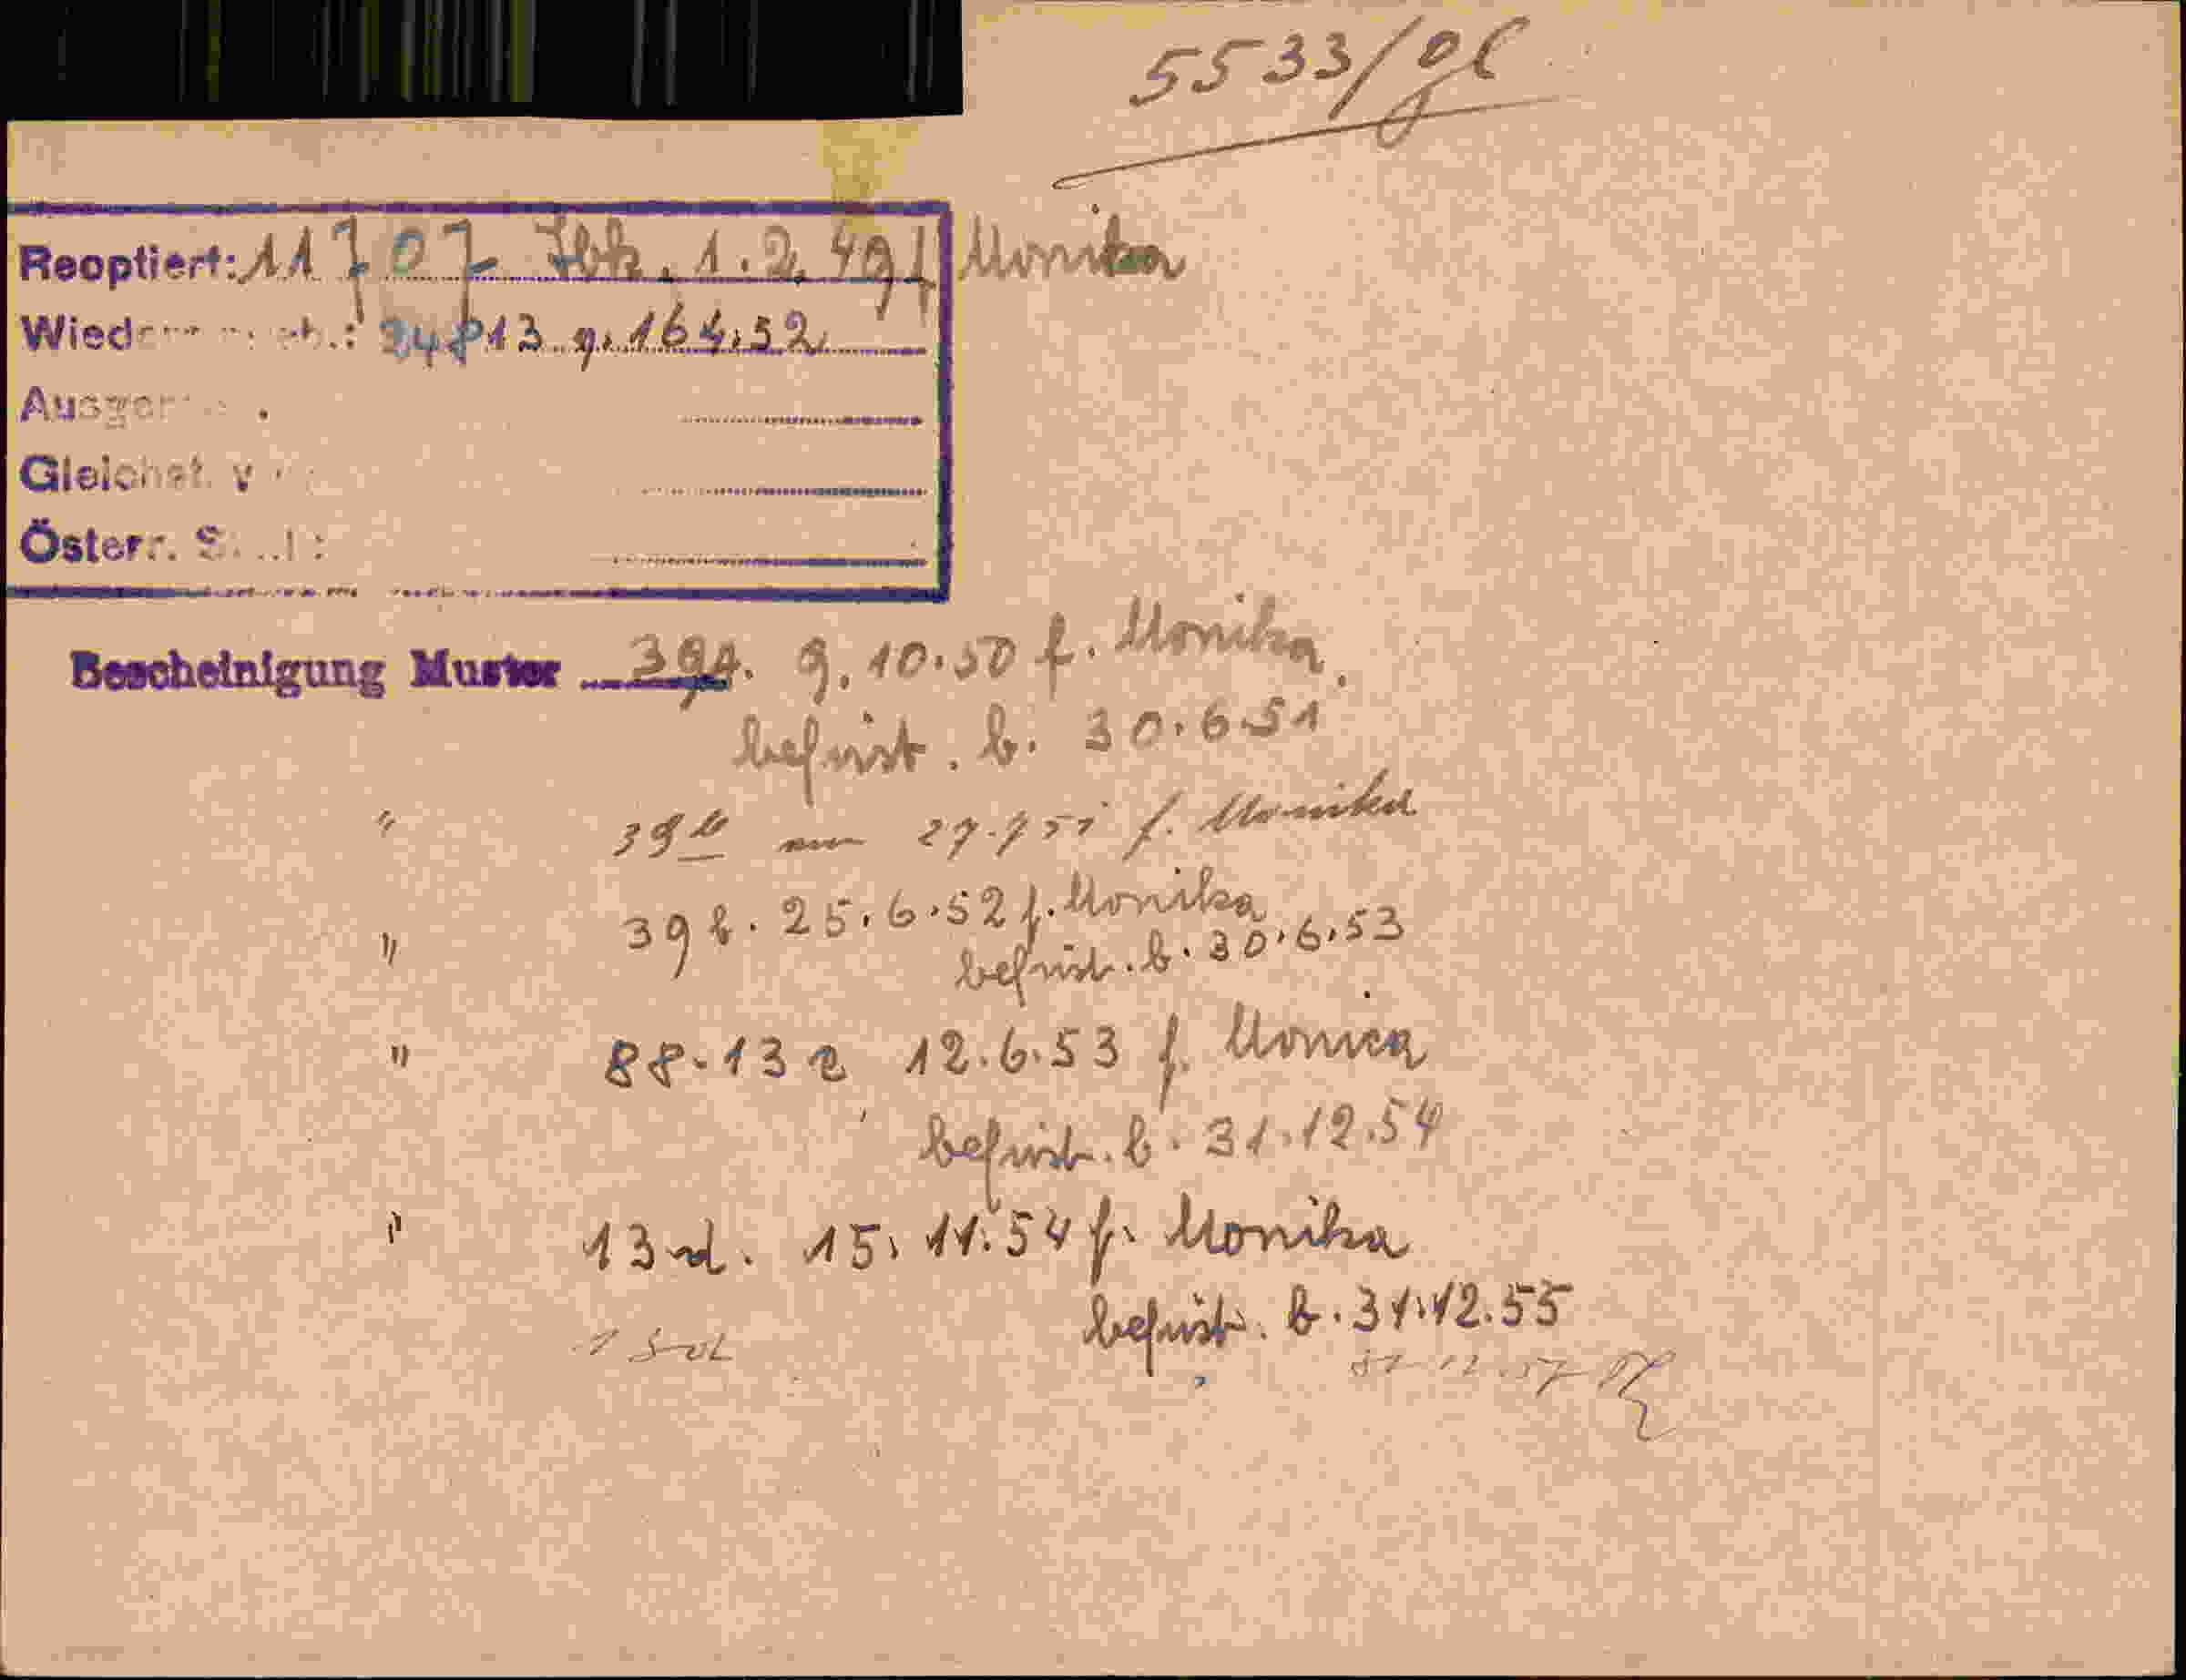 5533/
Reoptiert: 11707 Ibk. 1.2.49 f Monika
24813 9.164.52
Österr.
Bescheinigung Muster 39a. 9.10.50 f. Monika
befrist. b. 30.6.51
" 39b 27.7.51 f. Monika
" 39b. 25.6.52 f. Monika
befrist. b. 30.6.53
" 88-13a 12.6.53 f. Monica
befrist. b. 31.12.54
" 13d. 15.11.54 f. Monika
befrist. b. 31.12.55
31.12.57